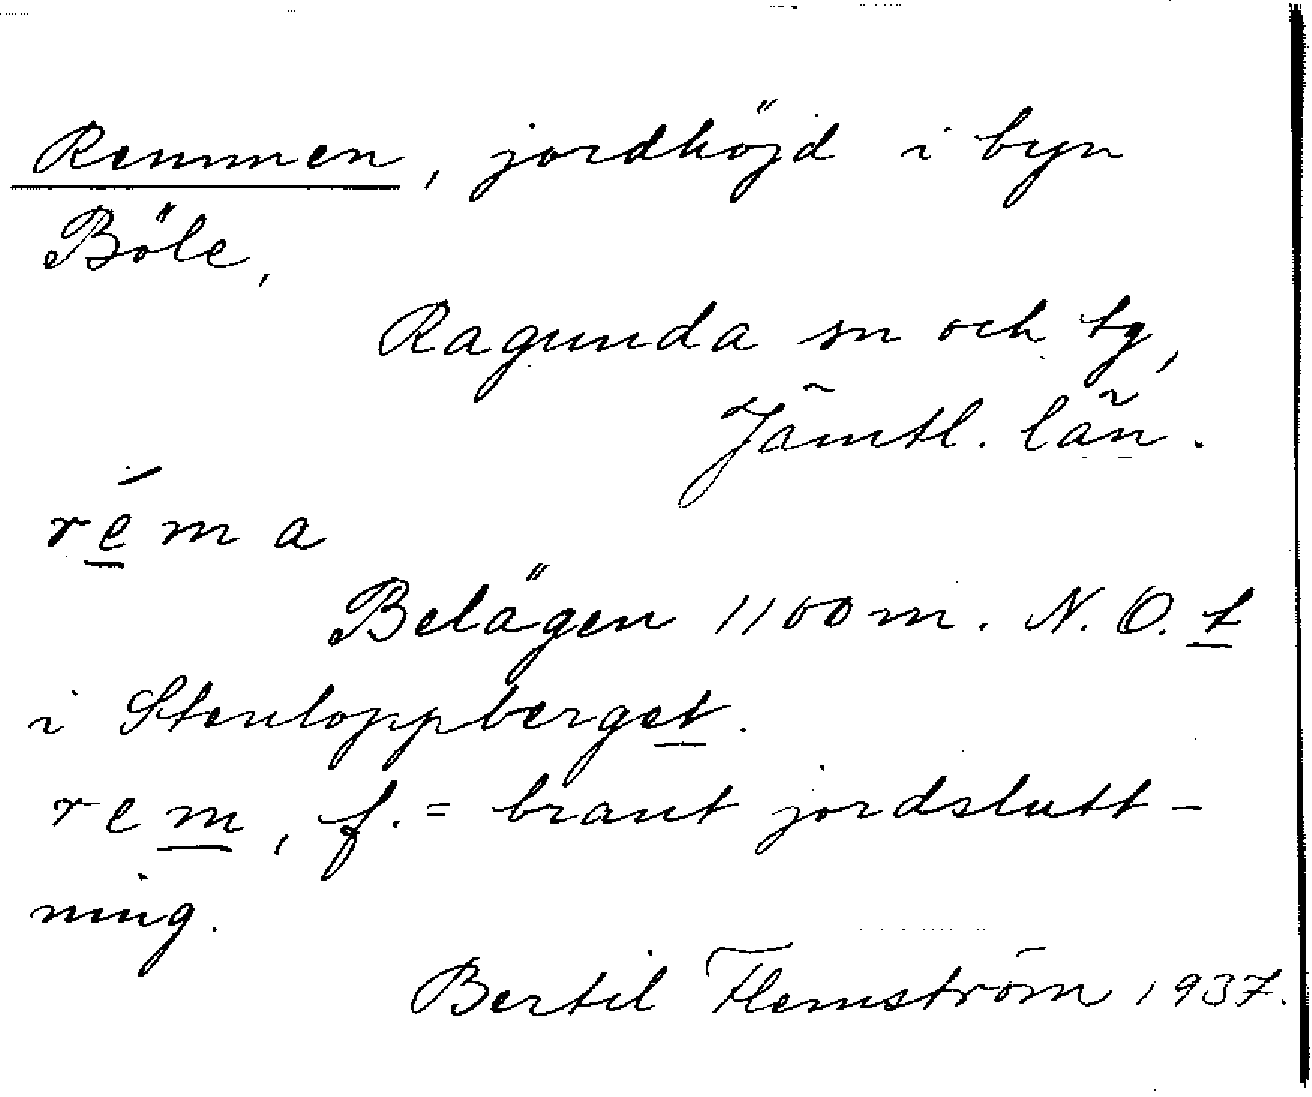 Remmen, jordhöjd i byn
Böle,
Ragunda sn och tg,
Jämtl. län.
réma
Belägen 1100 m. N.O. t
i Stenloppberget.
rem, f. = brant jordslutt-
ning.
Bertil Flemström 1937.